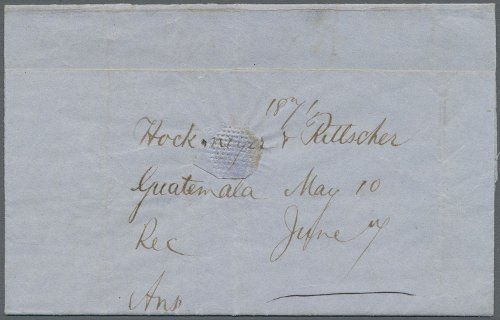 1871
Hockmeyer & Rittscher
Guatemala May 10
Rec June 7
Ans